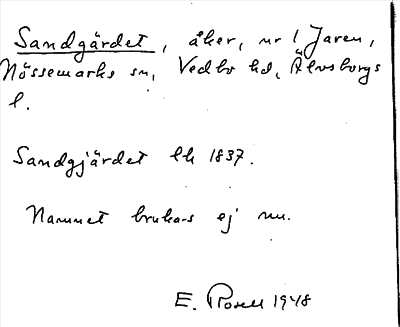 Sandgärdet, åker, nr 1 Jaren,
Nössemarks sn, Vedbo hd, Älvsborgs
l.
Sandgjärdet lh 1837.
Namnet brukas ej nu.
E. Rosell 1948